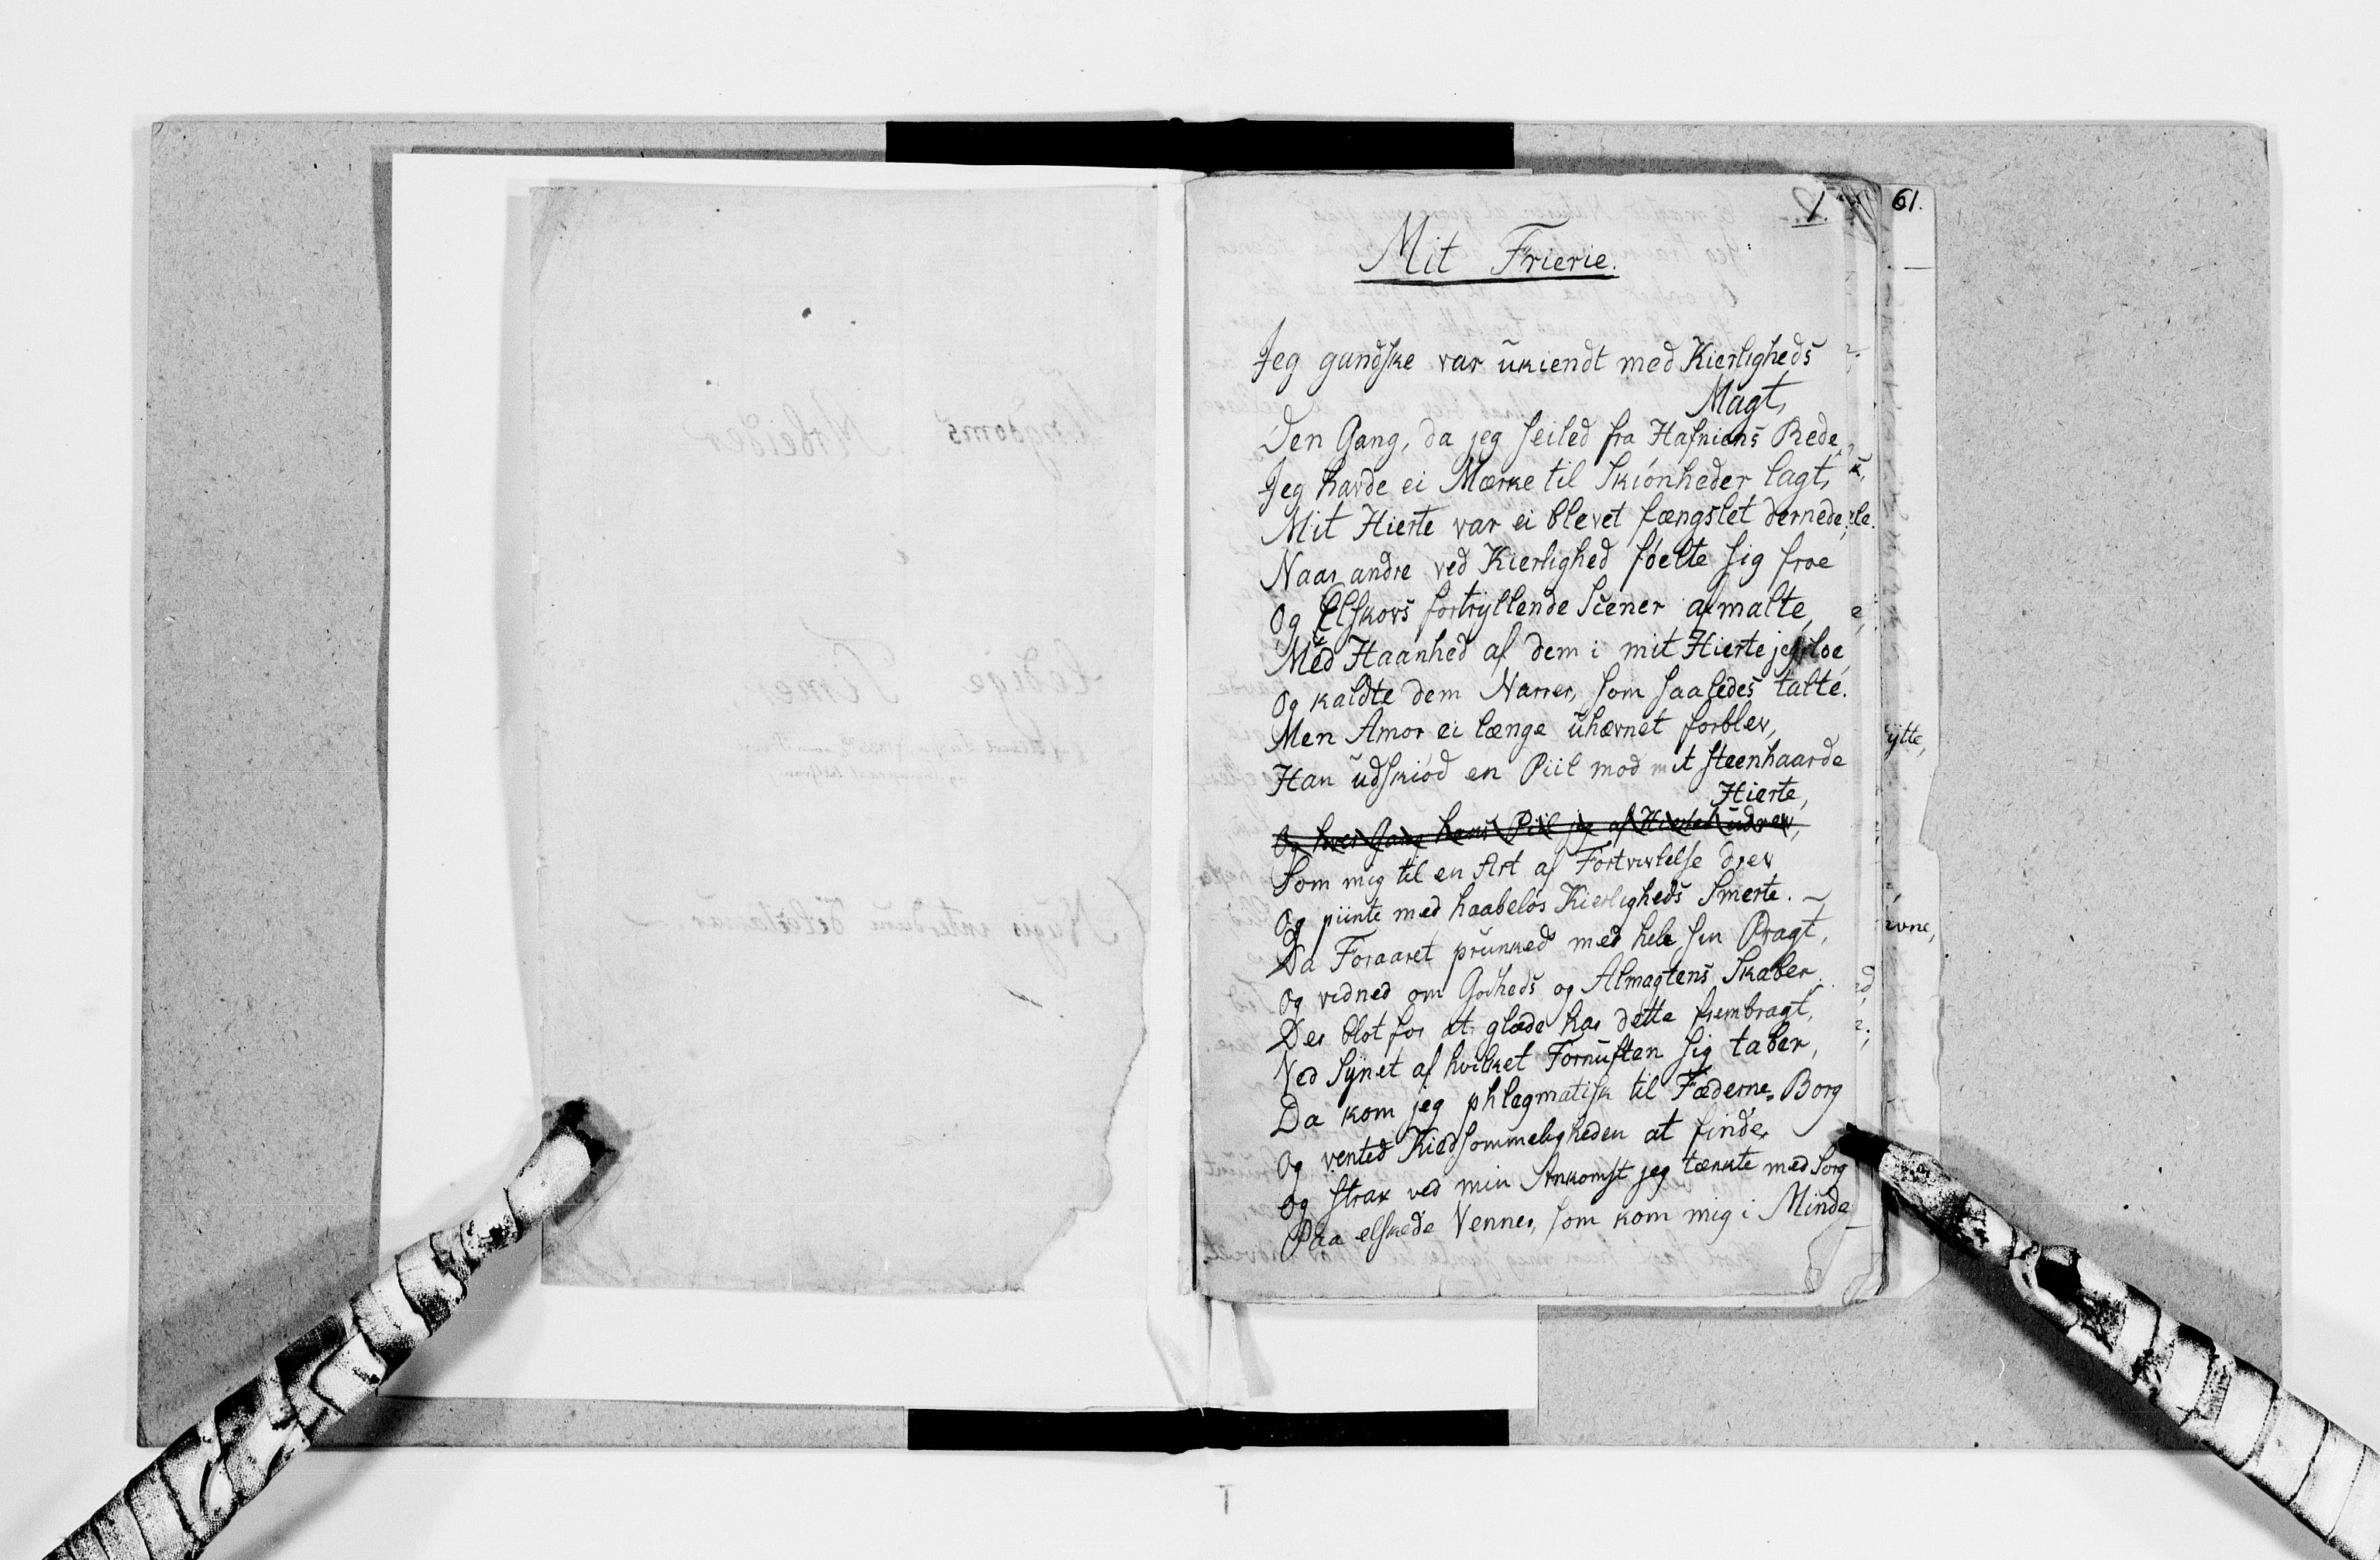 1.
61.
Mit Frierie.
Jeg gandske var ukiendt med Kierligheds
Magt,
Den Gang, da jeg seiled fra Hafniens Rede,
Jeg havde ei Mærke til Skiönheder lagt,
Mit Hierte var ei blevet fængslet dernede;
Naar andre ved Kierlighed föelte sig froe
Og Elskovs fortryllende Scener afmalte,
Med Haanhed af dem i mit Hierte jeg loe,
Og kaldte dem Narrer, som saaledes talte.
Men Amor ei længe uhævnet forblev,
Han udskiöd en Piil mod mit steenhaarde
Hierte,
Og hver Gang hans Piil jeg af Hiertet udrev,
Som mig til en Art af Fortvivlelse drev
Og piinte med haabelös Kierligheds Smerte. –
Da Foraaret prunked med hele sin Pragt,
Og vidned om Godheds og Almagtens Skaber,
Der blot for at glæde har dette frembragt,
Ved Synet af hvilket Fornuften sig taber,
Da kom jeg phlegmatisk til Fæderne-Borg
Og vented Kiedsommeligheden at finde,
Og strax ved min Ankomst jeg tænkte med Sorg
Paa elskede Venner, som kom mig i Minde
ytte,